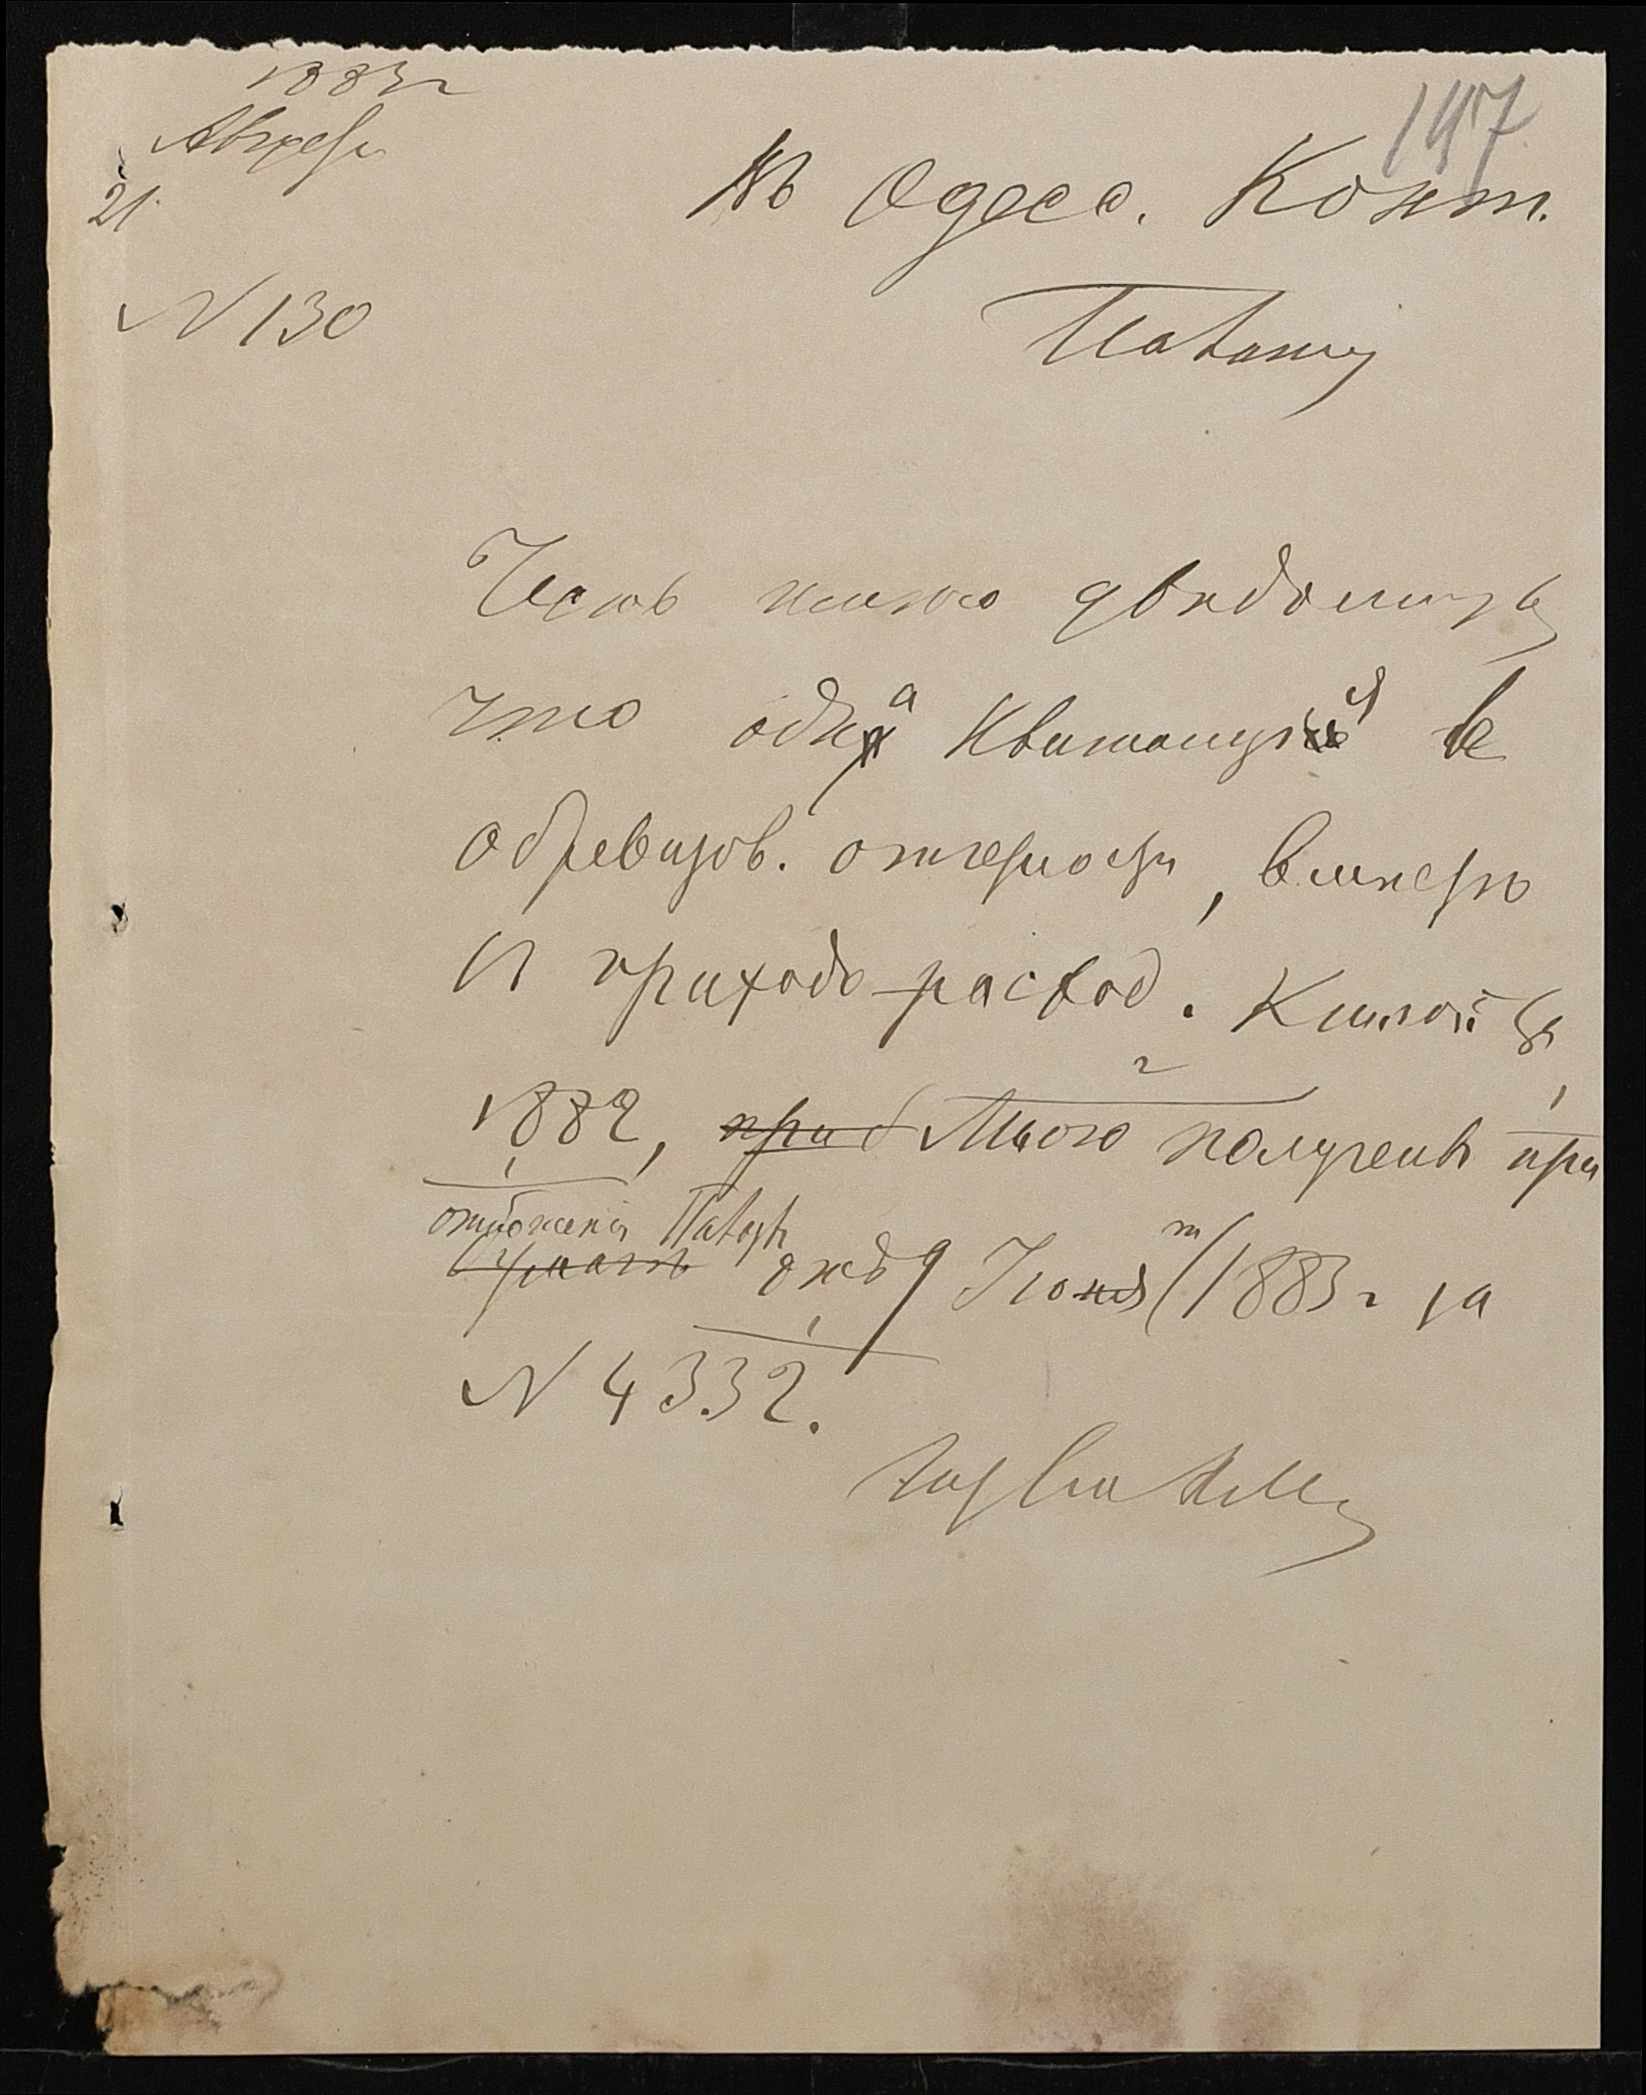 1883 г
Августа
21.
N 130
147
Въ Одесс. Конт.
Палату
Честь имею уведомить
что одна Квитанция в
обревизов. отчетности, вместе
и приходо-расход. Книгой за
1882 г, приб Мною получены при
отношении Палаты
бумаге отъ 9 Июня 1883 г за
N 4332.